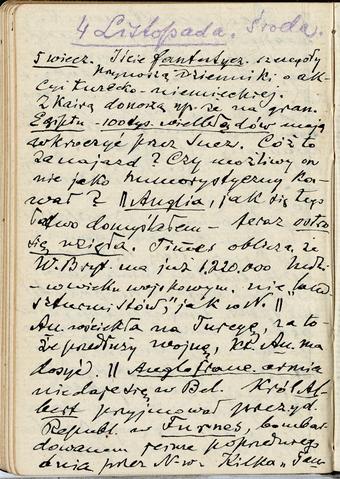 4 Listopada. Środa.
5 wiecz. Iście fantastycz. szczegóły
przynoszą dzienniki o ak-
cyi turecko-niemieckiej.
Z Kairo donoszą np. że na gran.
Egiptu - 100 tys. wielbłądów mają
wkroczyć przez Suez. Cóż to
za najazd? Czy możliwy on
nie jako humorystyczny ka-
wał? || Anglia, jak się tego
łatwo domyślałem - teraz ostro
się wzięła. Times oblicza, że
W. Bryt. ma już 1,220.000 ludzi
w wieku wojskowym, nie "land-
szturmistów", jak w N. ||
An. wściekła na Turcyę, za to-
że przedłuży wojnę, kt. An. ma
dosyć. || Anglofranc. armia
nie daje się w Bel. Król Al-
bert przyjmował prezyd.
Republ. w Furnes, bombar-
dowanem poprzedniego
dnia przez N-w. Kilka